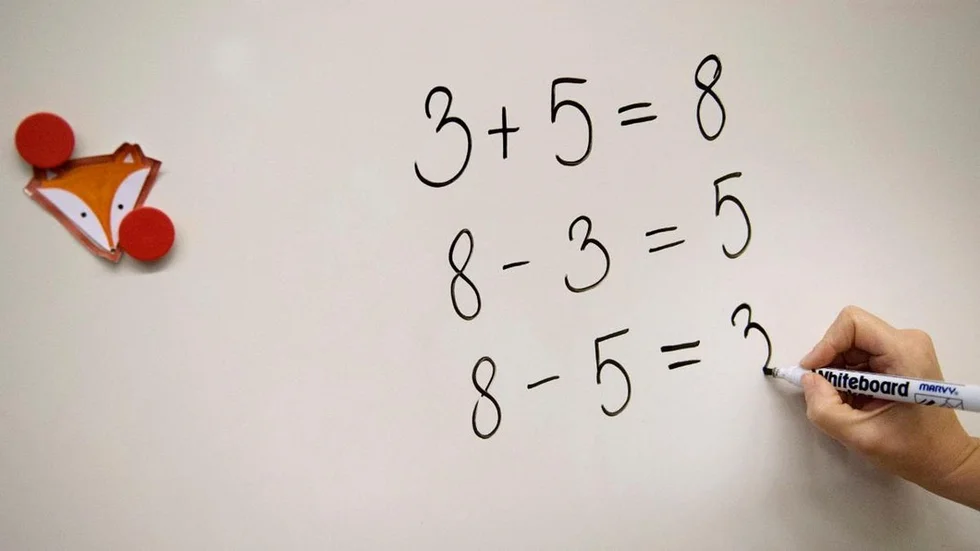 3 + 5 = 8
8 - 3 = 5
8 - 5 = 3
Whiteboard MARVY